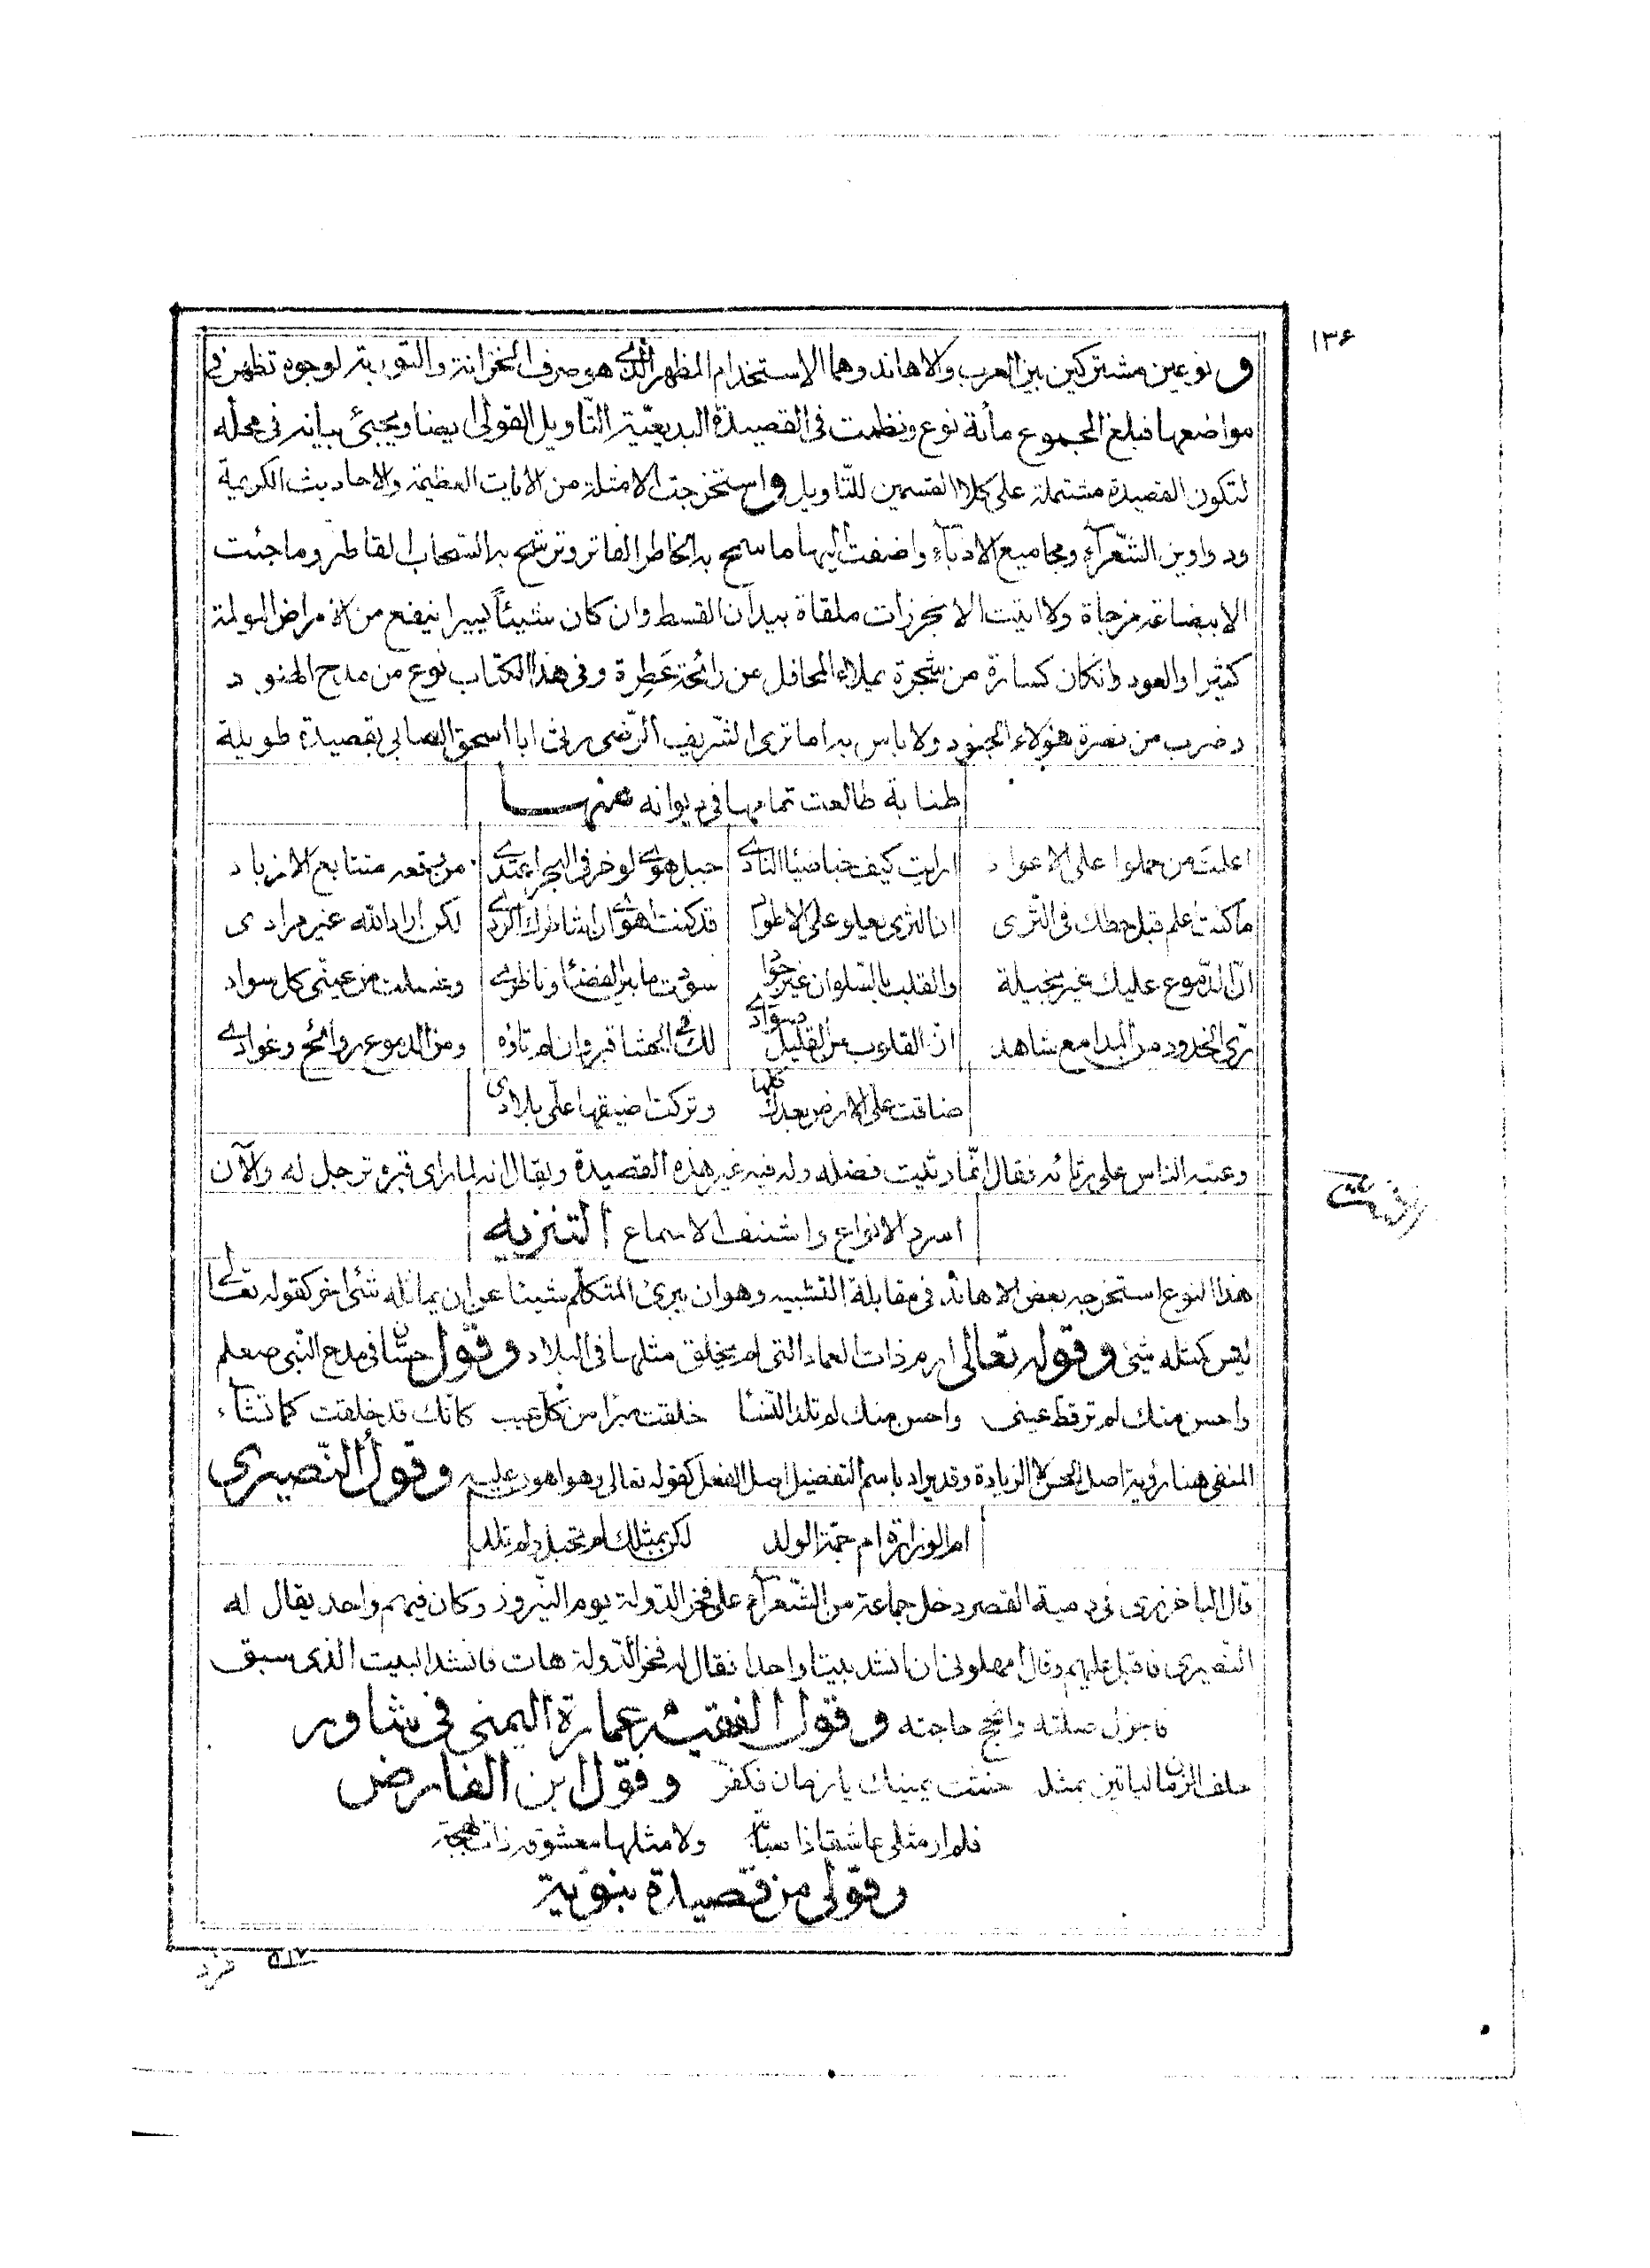 ١٣۶
و نوعين مشتركين بين العرب والاهاند وهما الاستخدام المظهر الذى هو صرف الخزانة والتورية لوجوه تظهر فى
مواضعها فبلغ المجموع مأئة نوع ونظمت فى القصيدة البديعيّة التّاويل القولى ايضا ويجيئ بيانه فى محلّه
لتكون القصيدة مشتملة على كلا القسمين للتّاويل و استخرجت الامثلة من الآيات العظيمة والاحاديث الكريمة
ودواوين الشّعرآء ومجاميع الادبآء واضفت اليها ما سمح به الخاطر الفاتر وترشح به السّحاب القاطر وما جئت
الا ببضاعة مزجاة ولا اتيت الا بخرزات ملقاة بيد ان القسط وان كان شيئاً يسيرا ينفع من الامراض المولمة
كثيرا والعود وانكان كسارة من شجرة يملاء المحافل من رائحة عَطِرة وفى هذا الكتاب نوع من مدح الهنود
و ضرب من نصرة هؤلاء الجنود ولا باس به اما ترى الشريف الرّضى رثى ابا اسحق الصابى بقصيدة طويلة
طنابة طالعت تمامها فى ديوانه منهــا
اعلمتَ من حملوا على الاعواد ارايت كيف خبا ضيا النّادى جبل هوى لو خر فى البحر اغتدى من وقعه متتابع الازباد
ما كنت اعلم قبل حطك فى الثّرى ان الثرى يعلو على الاطواد قد كنت اهوى ان اشاطرك الردى لكن اراد الله غير مرادى
انّ الدّموع عليك غير بخيلة والقلب بالسّلوان غير جواد سودت ما بين الفضا وناظرى وغسلت من عينّى كل سواد
رىّ الخدود من المدامع شاهد انّ القلوب من الغليل صوادى لك فى الحشا قبر وان لم تاوه ومن الدموع روائح وغوادى
ضاقت علىّ الارض بعدك كلها وتركت اضيقها علّى بلادى
وعتبه الناس على رثائه فقال انّما رثيت فضله وله فيه غير هذه القصيدة ويقال انه لما راى قبره ترجل له والآن
اسرد الانواع واشنف الاسماع التنزيه
هذا النوع استخرجه بعض الاهاند فى مقابلة التشبيه وهو ان يبرئ المتكلّم شيئا عن ان يماثله شئ اخر كقوله تعالى
ليس كمثله شئ وقوله تعالى ارم ذات العماد التى لم يخلق مثلها فى البلاد وقول حسّان فى مدح النّبى صعلم
واحسن منك لم تر قط عينى واحسن منك لم تلد النّسا خلقت مبرّا من كل عيب كانّك قد خلقت كما تشآء
المنفى هنا رؤية اصل الحسن لا الزيادة وقد يراد باسم التفضيل اصل الفعل كقوله تعالى وهو اهون عليه وقول النّصيرى
ام الوزارة ام جمّة الولد لكن بمثلك لم تحبل ولم تلد
قال الباخرزى فى دمية القصر دخل جماعة من الشّعرآء على فخر الدّولة يوم النّيروز وكان فيهم واحد يقال له
النّصيرى فاقبل عليهم وقال امهلونى ان انشد بيتا واحدا فقال له فخر الدّولة هات فانشد البيت الذى سبق
فاجزل صلته وانجح حاجته وقول الفقيه عمارة اليمنى فى شاور
حلف الزمان لياتين بمثله حنثت يمينك يا زمان فكفّر وقول ابن الفارض
فلم ار مثلى عاشقا ذا صبابة ولا مثلها معشوقة ذات بهجة
وقولى من قصيدة نبويّة